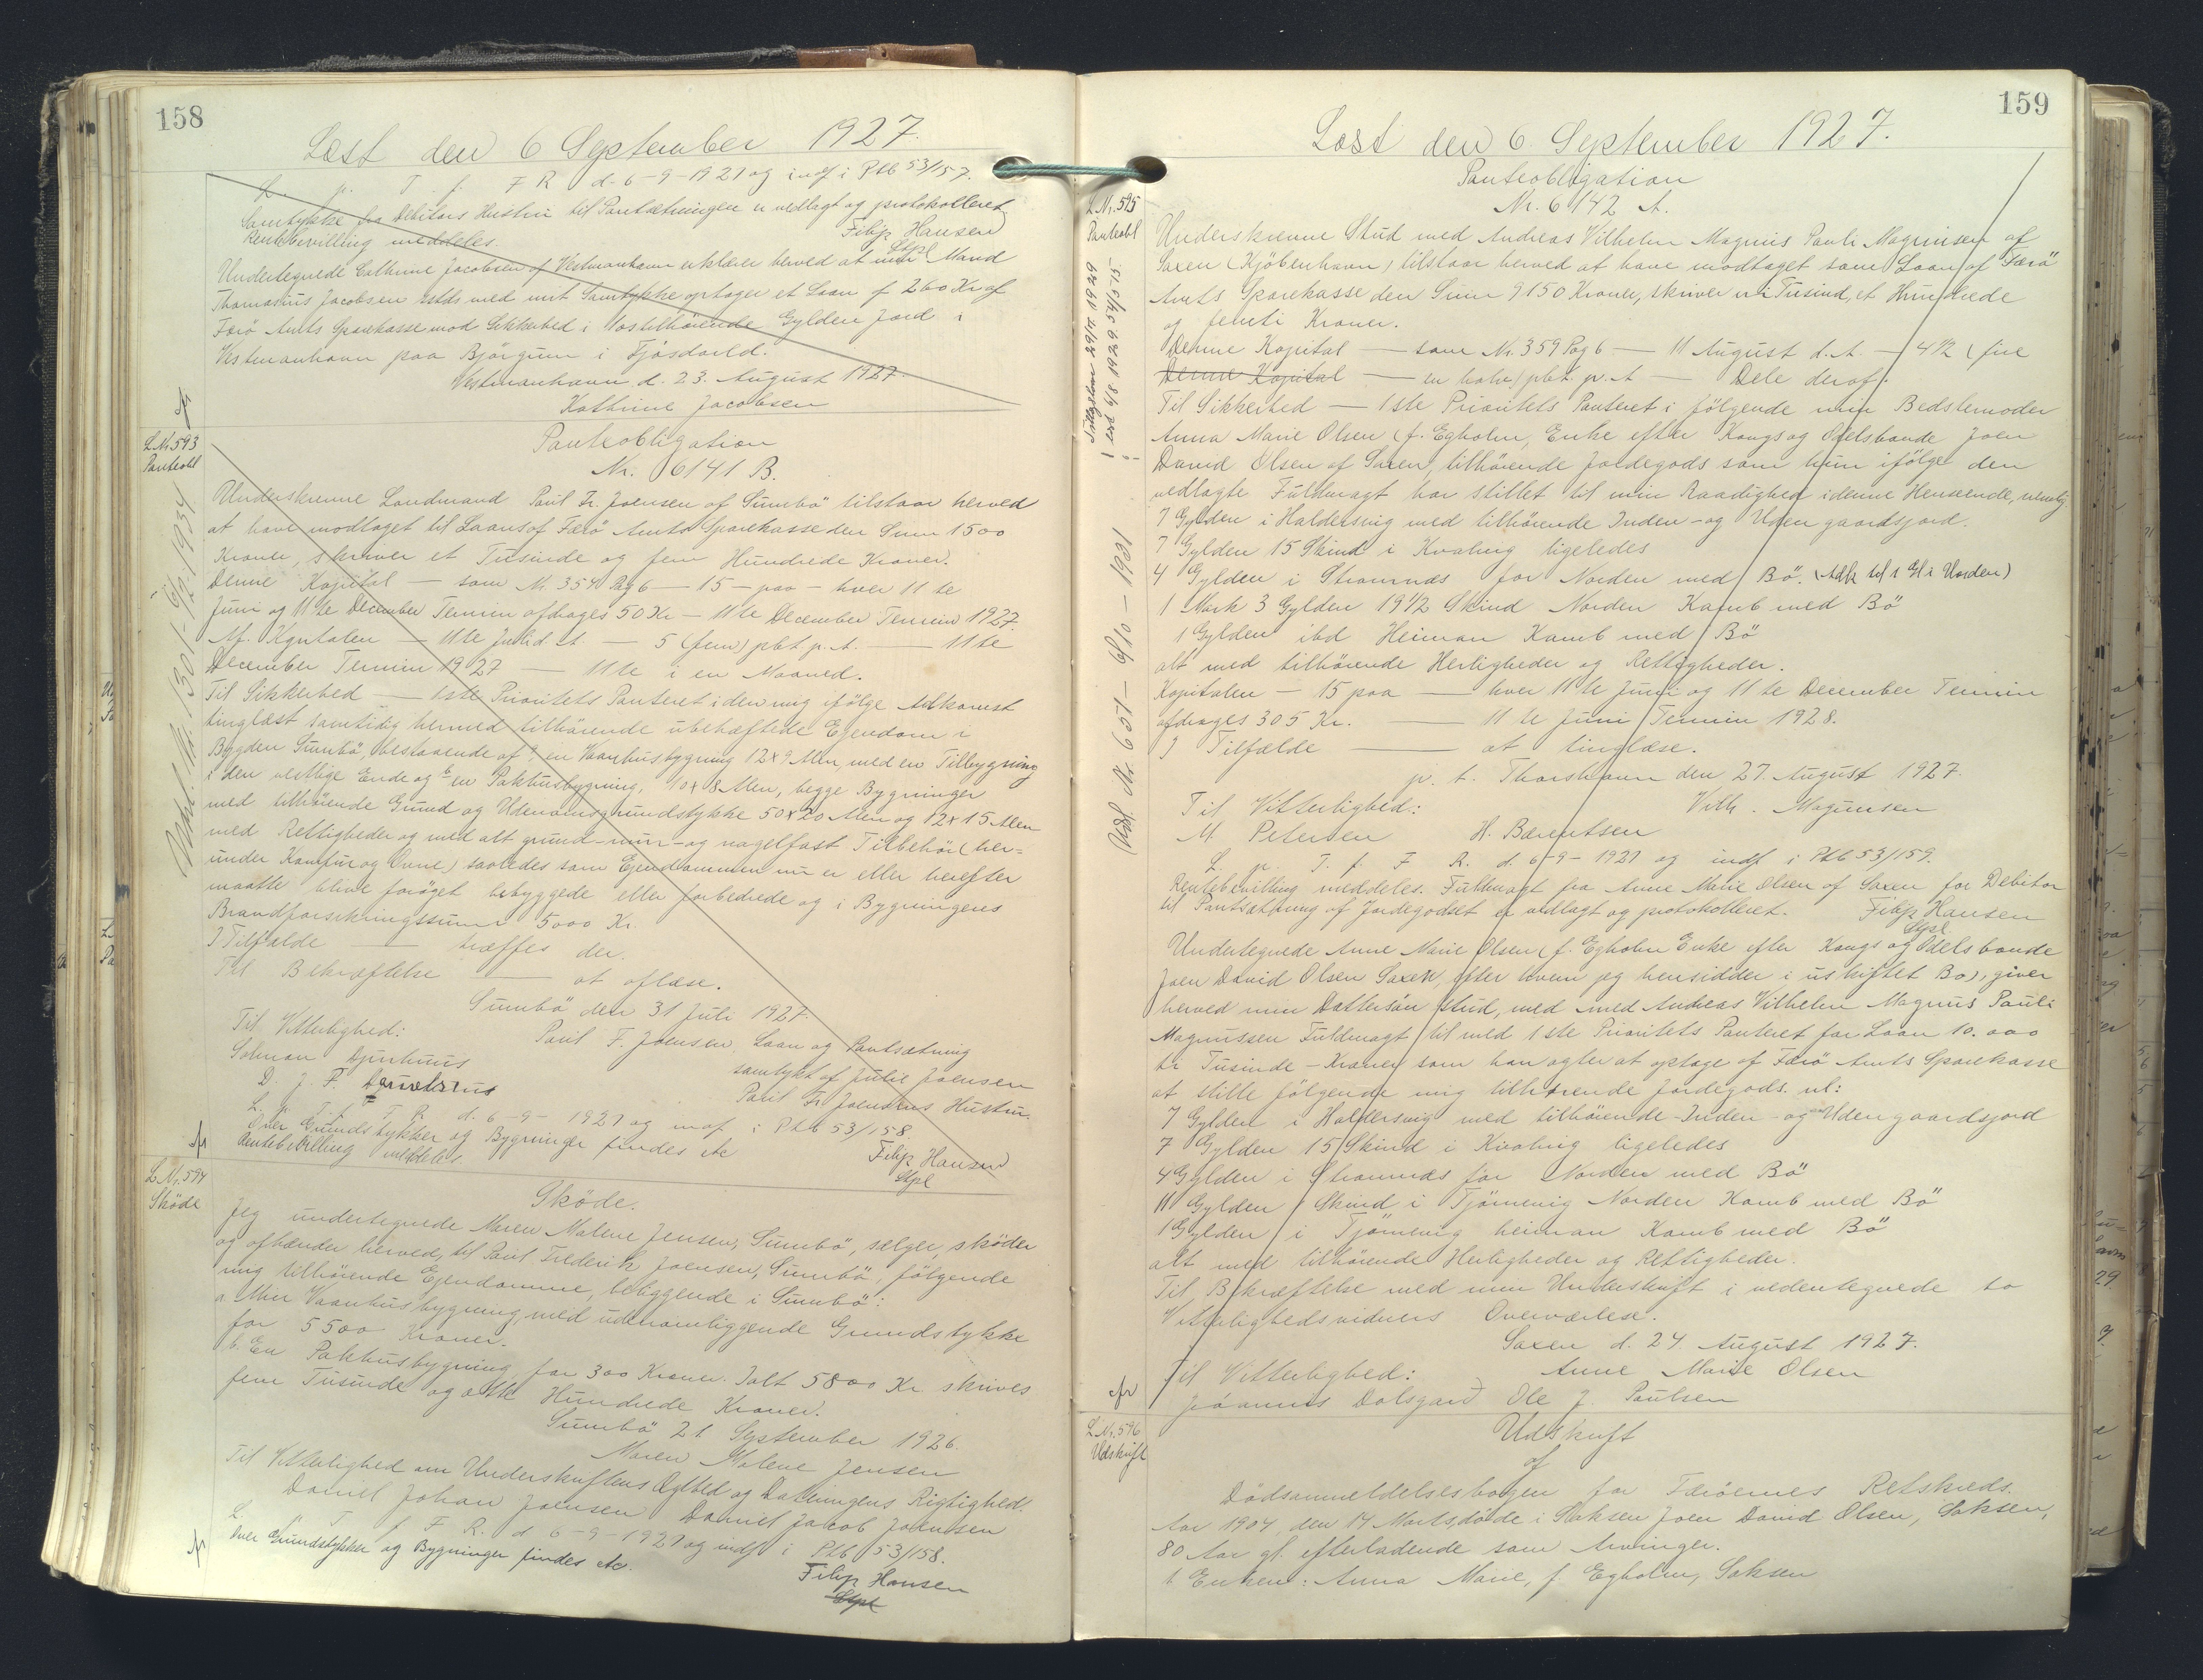 158
Læst den 6 September 1927.
L. p. T. f. F R d. 6-9-1927 og indf i Ptb 53/157.
Samtykke fra Debitors Hustru til Pantsætningen er vedlagt og protokolleret
Rentebevilling meddeles.
Filip Hansen
Stpl
Undertegnede Cathrine Jacobsen af Vestmanhavn erklærer herved at min Mand
Thomasius Jacobsen ibds med mit Samtykke optager et Laan af 260 Kr af
Færö Amts Sparekasse mod Sikkerhed i tilhørende Gylden Jord i
Vestmanhavn paa Björgum i Fjósdarld.
Vestmanhavn d. 23. August 1927
Kathrine Jacobsen
L.Nr. 593
Panteobl
Panteobligation
Nr. 6141 B.
Underskrevne Landmand Poul Fr. Joensen af Sumbö tilstaar herved
at have modtaget til Laans af Færö Amts Sparekasse den Sum 1500
Kroner, skriver et Tusinde og fem Hundrede Kroner.
Denne Kapital — som Nr. 354 Pag 6 — 15 — paa — hver 11 te
Juni og 11 te December Termin afdrages 50 Kr — 11te December Termin 1927.
Af Kapitalen — 11te Juli d. A. — 5 (fem) pCt. p. A. — 11 te
December Termin 1927 — 11te i en Maaned.
Til Sikkerhed — 1ste Prioritets Panteret i den mig ifølge Adkomst
tinglæst samtidig hermed tilhørende ubehæftede Ejendom i
Bygden Sumbö, bestaaende af a, en Vaanhusbygning 12x9 Alen, med en Tilbygning
i den vestlige Ende og b en Pakhusbygning, 10x8 Alen, begge Bygninger
med tilhørende Grund og Udenomsgrundstykke 50x20 Alen og 12x15 Alen
med Rettigheder og med alt grund- mur- og nagelfast Tilbehör (her=
under Komfur og Ovne) saaledes som Ejendommen nu er eller herefter
maatte blive forøget bebyggede eller forbedrede og i Bygningens
Brandforsikringssum 5000 Kr.
I Tilfælde — træffes der.
Til Bekræftelse — at aflæse.
Sumbö den 31 Juli 1927.
Til Vitterlighed:
Poul F. Joensen. Laan og Pantsætning
Solmon Djurhuus
samtykt af Julie Joensen
D. J. F.
Poul Fr. Joensens Hustru.
L. p. T. f. F. R. d. 6-9-1927 og indf. i Ptb 53/158
Over Grundstykker og Bygninger findes etc
Rentebevilling meddeles.
Filip Hansen
Stpl
Udsl. Nr. 1301-19/9 1934
L.Nr. 594
Sköde
Sköde.
Jeg undertegnede Maren Malene Jensen, Sumbö, sælger, sköder
og afhænder herved, til Poul Frederik Joensen, Sumbö, følgende
mig tilhørende Ejendomme, beliggende i Sumbö:
a Min Vaanhusbygning, med udenomliggende Grundstykke
for 5500 Kroner.
b. En Pakhusbygning for 300 Kroner. Ialt 5800 Kr skrives
fem Tusinde og otte Hundrede Kroner.
Sumbö 21 September 1926.
Maren Malene Jensen
Til Vitterlighed om Underskriftens Ægthed og Dateringens Rigtighed.
Daniel Johan Joensen Daniel Jacob Joensen
L. p. T. f. F. R. d 6-9-1927 og indf i Ptb 53/158.
Over Grundstykker og Bygninger findes etc.
Filip Hansen
Stpl
159
Læst den 6. September 1927.
L.Nr. 595
Panteobl
Panteobligation
Nr. 6142 A.
Underskrevne Stud med Andreas Vilhelm Magnus Pauli Magnusen af
Saxen (Kjöbenhavn) tilstaar herved at have modtaget som Laan af Færö
Amts Sparekasse den Sum 9150 Kroner, skriver ni Tusind, et Hundrede
og femti Kroner.
Denne Kapital — som Nr. 359 Pag 6 — 11 August d. A. — 4 1/2 (fire
Denne Kapital — en halv) pCt. p. A — Dele deraf.
Til Sikkerhed — 1ste Prioritets Panteret i følgende min Bedstemoder
Anna Marie Olsen (f. Egholm, Enke efter Kongs og Odelsbonde Joen
David Olsen af Saxen, tilhørende Jordegods som hun ifølge den
vedlagte Fuldmagt har stillet til min Raadighed i denne Henseende, nemlig:
7 Gylden i Haldersvig med tilhørende Inden- og Uden gaardsjord.
7 Gylden 15 Skind i Kvalvig ligeledes
4 Gylden i Strømnæs for Norden med Bö. (Adk til 1 Gl i Unden)
1 Mark 3 Gylden 19 1/2 Skind Norden Kamb med Bö
1 Gylden ibd Heiman Kamb med Bö
alt med tilhørende Herligheder og Rettigheder.
Kapitalen — 15 paa — hver 11 te Juni og 11 te December Termin
afdrages 305 Kr. — 11 te Juni Termin 1928.
I Tilfælde — at tinglæse.
p. t. Thorshavn den 27. August 1927.
Til Vitterlighed:
Vilh. Magnusen
M Petersen H. Bærentsen
L. p. T. f. F R. d. 6-9-1927 og indf i Ptb 53/159.
Rentebevilling meddeles. Fuldmagt fra Anne Marie Olsen af Saxen for Debitor
til Pantsætning af Jordegodset er vedlagt og protokolleret.
Filip Hansen
Stpl
Undertegnede Anne Marie Olsen (f. Egholm Enke efter Kongs og Odelsbonde
Joen David Olsen Saxen, efter hvem jeg hensidder i uskiftet Bo), giver
herved min Dattersøn stud, med med Andreas Vilhelm Magnus Pauli
Magnussen Fuldmagt til med 1ste Prioritets Panteret for Laan 10.000
ti Tusinde - Kroner som han agter at optage af Færö Amts Sparekasse
at stille følgende mig tilhørende Jordegods. nl:
7 Gylden i Haldersvig med tilhørende Inden- og Udengaardsjord
7 Gylden 15 Skind i Kvalvig ligeledes
4 Gylden i Strømnæs for Norden med Bö
11 Gylden 1 Skind i Tjörnevig Norden Kamb med Bö
1 Gylden i Tjörnevig heiman Kamb med Bö
alt med tilhørende Herligheder og Rettigheder.
Til Bekræftelse med min Underskrift i nedentegnede to
Vitterlighedsvidners Overværelse.
Saxen d. 24 August 1927.
Til Vitterlighed:
Anne Marie Olsen
Jóannis Dalsgard Ole J. Poulsen
L.Nr. 596
Udskrift
Udskrift
af
Dødsanmeldelsesbogen for Færöernes Retskreds.
Aar 1904, den 14 Marts, døde i Saksen Joen David Olsen, Saksen,
80 Aar gl. efterladende som Arvinger.
1 Enken: Anna Marie, f. Egholm, Saksen